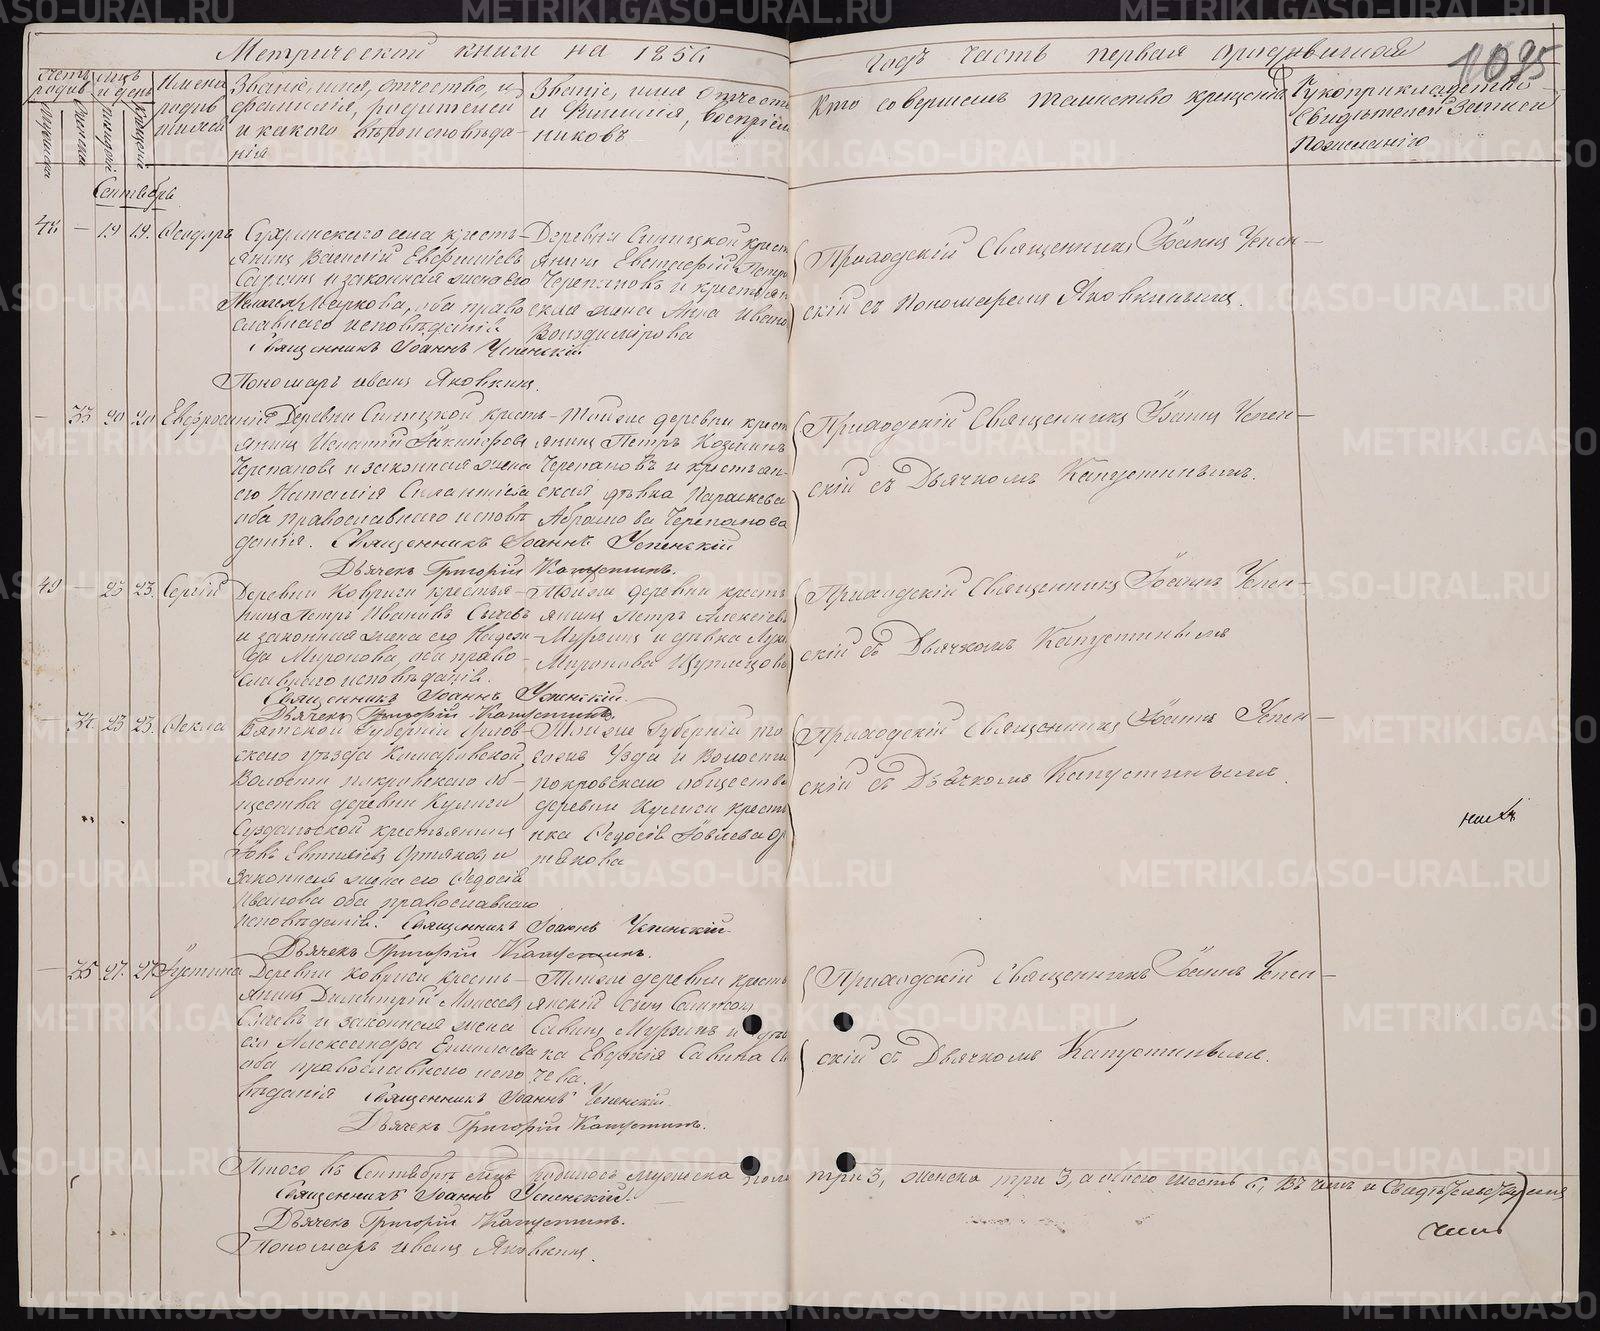 Метрической книги на 1856 годъ часть первая о родившихся
1095
Счетъ родив
Мужеска
Женска
мцъ и день
Рожденiя
Крещенiя
Имена родив шихся
Званiе, имя, отчество, и фамилiя, родителей и какого вѣроисповѣда-
нiя
Званiе, имя отчество и Фамилiя, воспрiем
никовъ
Кто совершалъ таинство крещенiя
Рукоприкладство Свидѣтелей Записи
Пожеланiю
Сентябрь
48 — 19 19. Ѳеодоръ
Сугринскаго села кресть-
янинъ Василiй
и законная жена его
Маркова, оба право
славнаго исповѣданiя
Священникъ Iоаннъ Успенскiй
Пономарь Иванъ Яковкинъ.
Деревни Синицкой крест
янинъ Евстафiй Петро
Черепановъ и крестьян
ская жена Анна Ивано
Приходскiй Священникъ Iоаннъ Успен-
скiй съ Пономаремъ Яковкинымъ.
— 33 20 20 Евфросинiя
Деревни Синицкой кресть-
янинъ Игнатiй
Черепановъ и законная жена
его Наталiя
оба православнаго исповѣ
данiя. Священникъ Iоаннъ Успенскiй
Дьячекъ Григорiй Капустинъ.
Той же деревни крест
янинъ Петръ Козминъ
Черепановъ и крестьян-
ская дѣвка Параскева
Абрамова Черепанова
Приходскiй Священникъ Iоаннъ Успен-
скiй съ Дьячкомъ Капустинымъ.
49 — 23 23. Сергiй
Деревни Ковриги крестья-
нинъ Петръ Ивановъ Сычевъ
и законная жена его Надеж-
да Миронова, оба право-
славнаго исповѣданiя.
Священникъ Iоаннъ Успенскiй.
Дьячекъ Григорiй Капустинъ
Той же деревни кресть
янинъ Петръ Алексѣевъ
Мурзинъ и дѣвка
Миронова
Приходскiй Священникъ Iоаннъ Успен-
скiй съ Дьячкомъ Капустинымъ
— 34 23 23. Ѳекла
Вятской Губернiи Орлов-
скаго уѣзда
Волости покровскаго об-
щества деревни Кулиги
крестьянинъ
законная жена его Ѳедосiя
Иванова оба православнаго
исповѣданiя. Священникъ Iоаннъ Успенскiй
Дьячекъ Григорiй Капустинъ.
Той же Губернiи то
гожъ Уѣзда и Волости
покровскаго общества
деревни Кулиги кресть
Приходскiй Священникъ Iоаннъ Успен-
скiй съ Дьячкомъ Капустинымъ.
— 35 27. 27. Iустина
Деревни Ковриги кресть-
янинъ Димитрiй Моисеевъ
Сычевъ и законная жена
его Александра Ермолаева
оба православнаго испо
вѣданiя Священникъ Iоаннъ Успенскiй.
Дьячекъ Григорiй Капустинъ.
Той же деревни кресть
янскiй сынъ
Савинъ Мурзинъ и
ка Евдокiя Савина Сы
чева.
Приходскiй Священникъ Iоаннъ Успен-
скiй съ Дьячкомъ Капустинымъ.
Итого въ Сентябрѣ мцѣ родилось мужеска пола три 3, женска три 3, а обоего шесть 6, Въ чемъ и Свидѣтельствуемъ
Священникъ Iоаннъ Успенскiй.
Дьячекъ Григорiй Капустинъ.
Пономарь Иванъ Яковкинъ.
METRIKI.GASO-URAL.RU